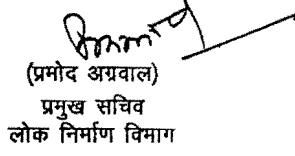 (प्रमोद अग्रवाल)
प्रमुख सचिव
लोक निर्माण विभाग